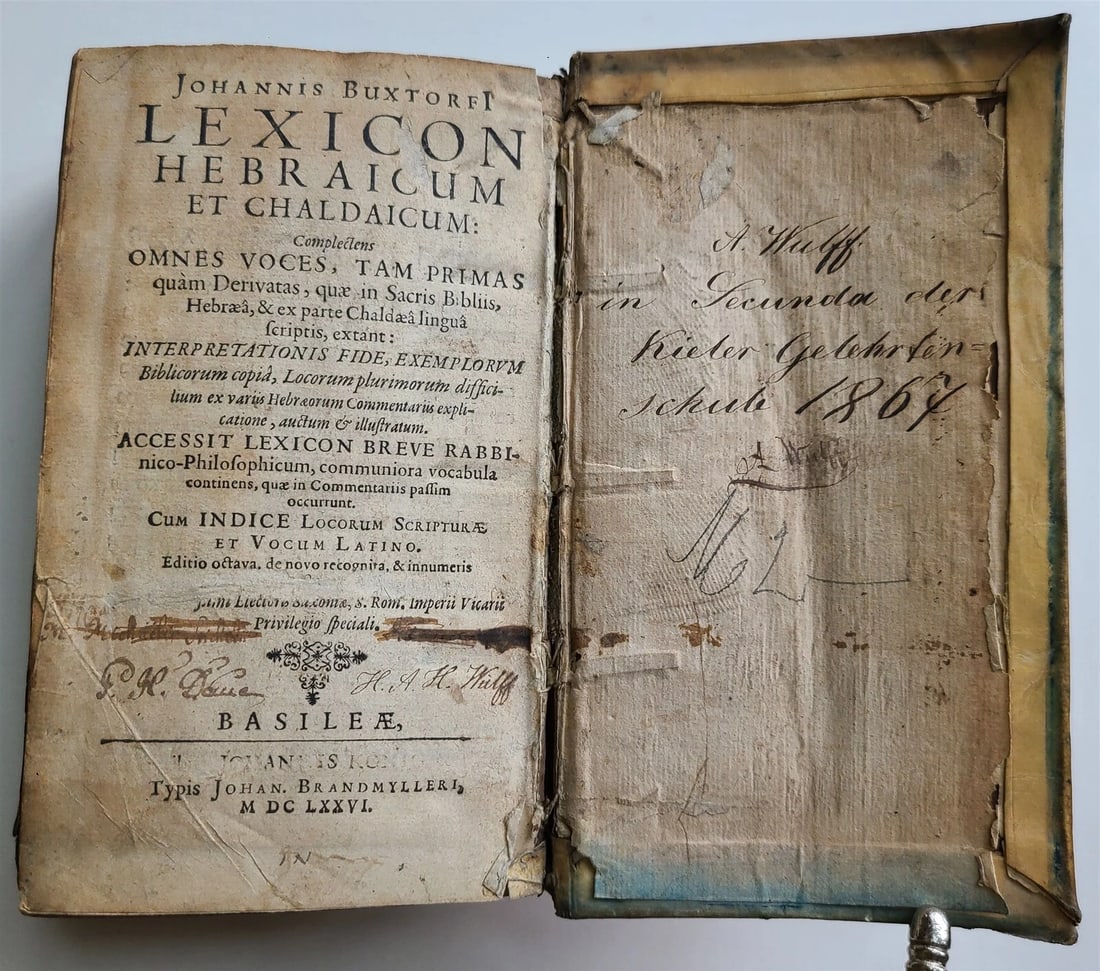 JOHANNIS BUXTORFI
LEXICON
HEBRAICUM
ET CHALDAICUM:
Complectens
OMNES VOCES, TAM PRIMAS
quàm Derivatas, quæ in Sacris Bibliis,
Hebræâ, & ex parte Chaldæâ linguâ
scriptis, extant:
INTERPRETATIONIS FIDE, EXEMPLORVM
Biblicorum copiâ, Locorum plurimorum diffici-
lium ex variis Hebræorum Commentariis expli-
catione, auctum & illustratum.
ACCESSIT LEXICON BREVE RABBI-
nico-Philosophicum, communiora vocabula
continens, quæ in Commentariis passim
occurrunt.
CUM INDICE LOCORUM SCRIPTURÆ
ET VOCUM LATINO.
Editio octava, de novo recognita, & innumeris
Electoris Saxoniæ, S. Rom. Imperii Vicarii
Privilegio speciali.
P. H.
H. A. H. Wulff
BASILEÆ,
JOHANNIS
Typis JOHAN. BRANDMYLLERI,
M DC LXXVI.
A. Wulff.
in Secunda der
Kieler Gelehrten=
schule 1867